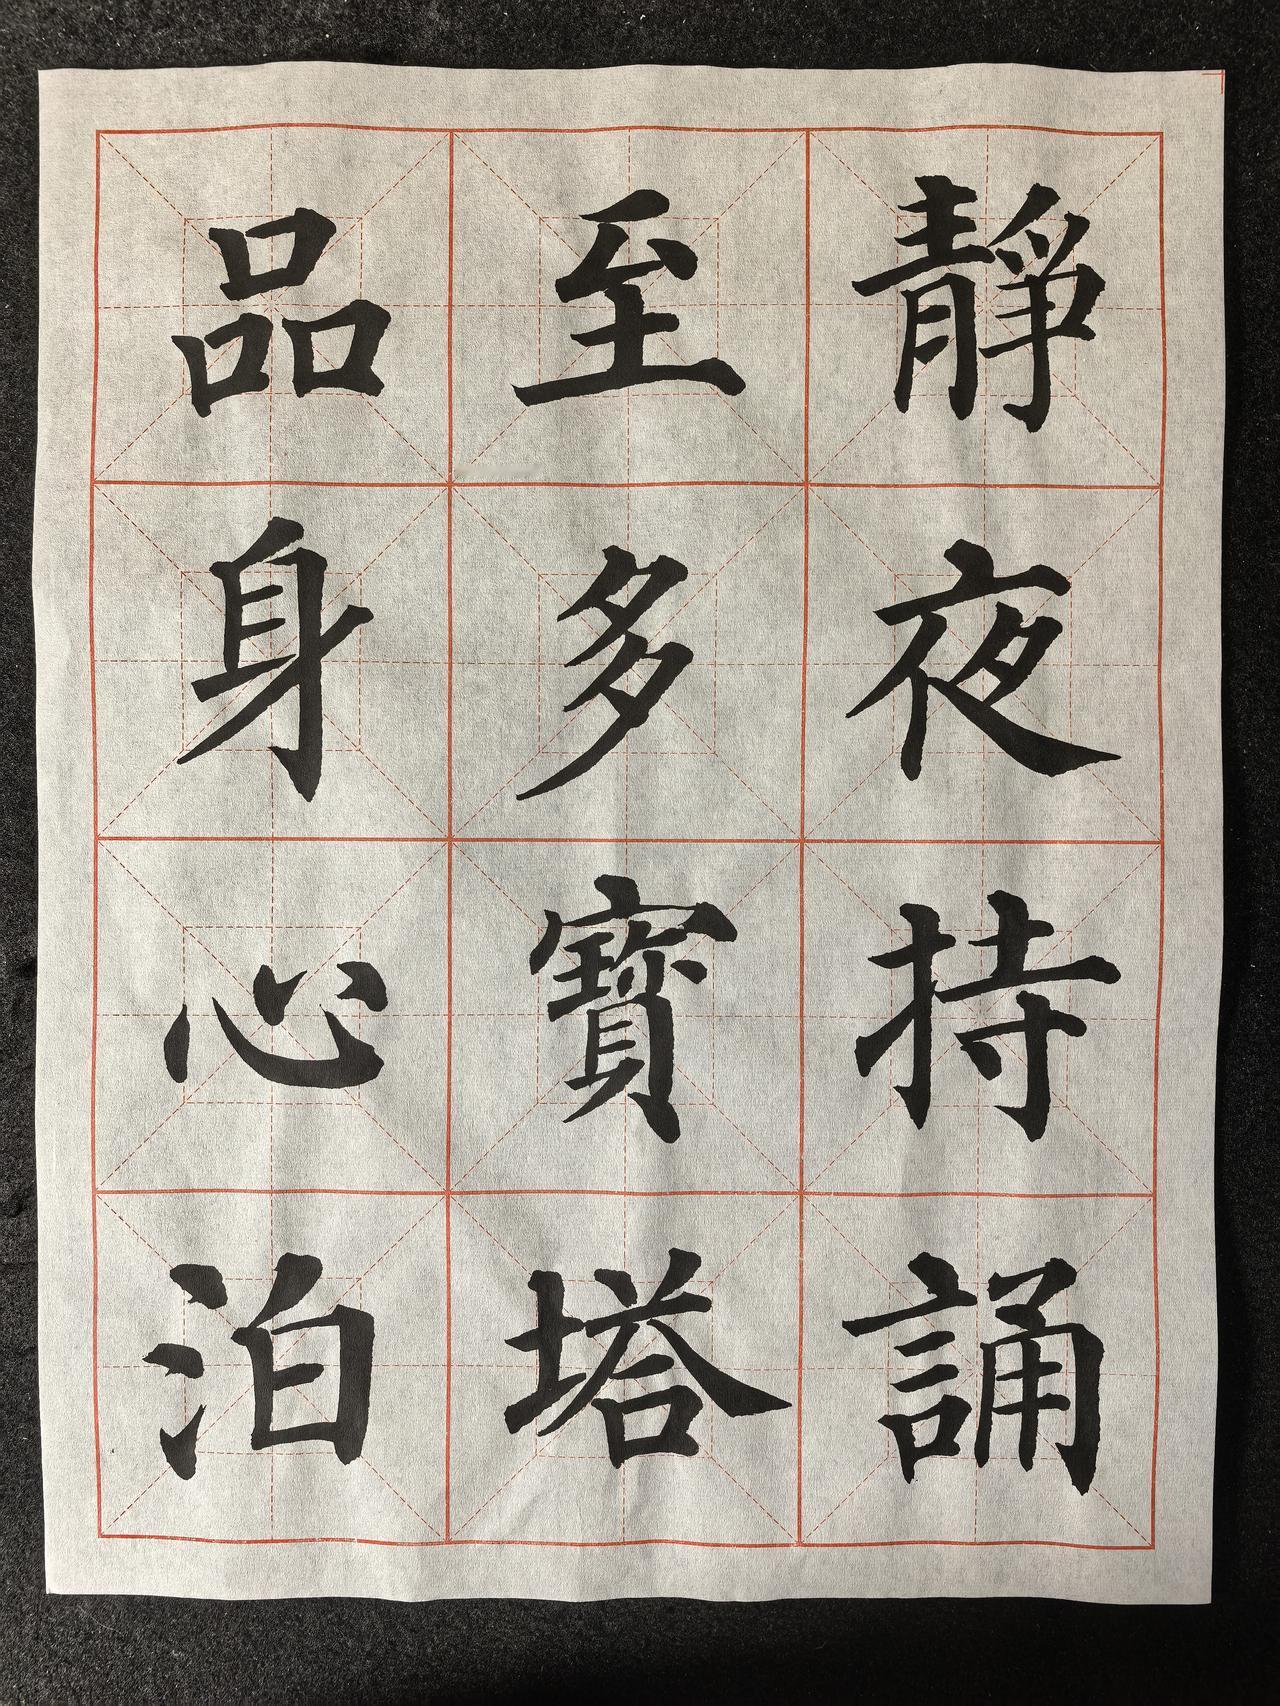 靜夜持誦
至多寶塔
品身心泊